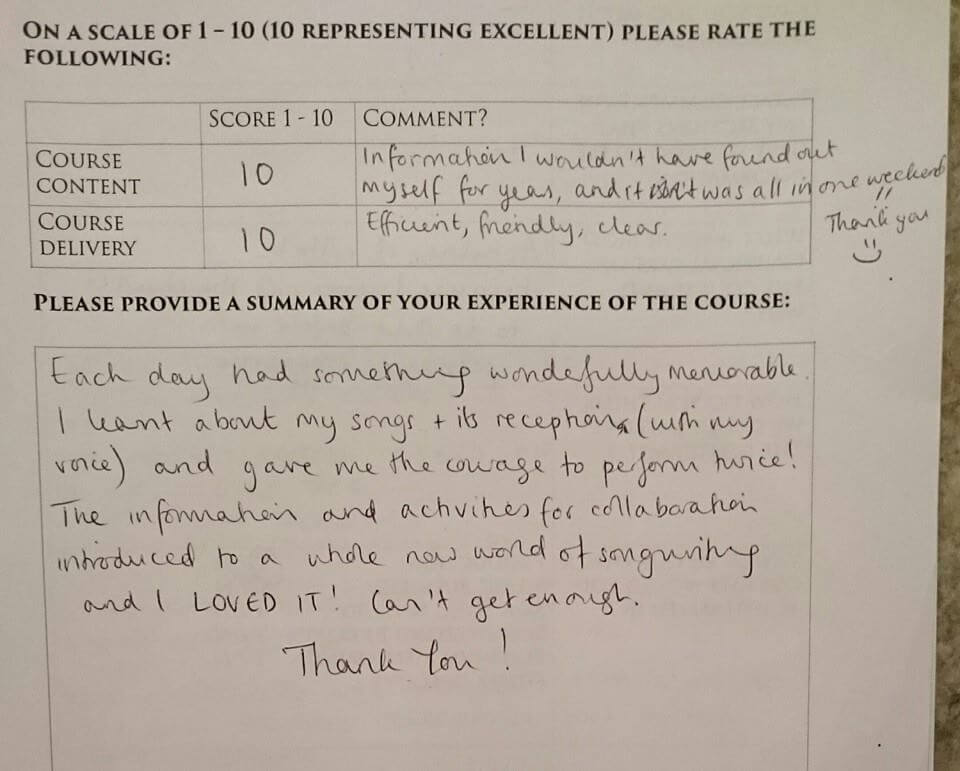 ON A SCALE OF 1 – 10 (10 REPRESENTING EXCELLENT) PLEASE RATE THE
FOLLOWING:
SCORE 1 - 10 COMMENT?
COURSE CONTENT
10
Information I wouldn't have found out
myself for years, and it was all in one weekend!!
Thank you
COURSE DELIVERY
10
Efficient, friendly, clear.
PLEASE PROVIDE A SUMMARY OF YOUR EXPERIENCE OF THE COURSE:
Each day had something wonderfully memorable.
I learnt about my songs + its reception (with my
voice) and gave me the courage to perform twice!
The information and activities for collaboration
introduced to a whole new world of songwriting
and I LOVED IT! Can't get enough.
Thank You!